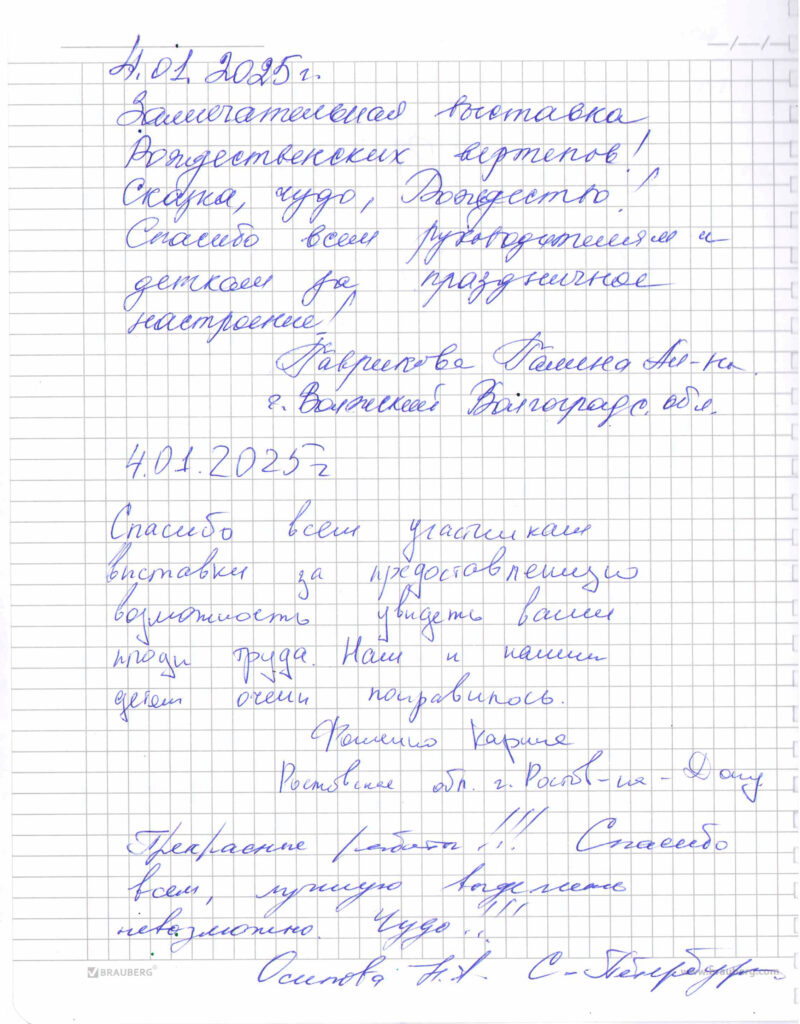 4.01.2025г.
Замечательная выставка
Рождественских вертепов!
Сказка, чудо, Рождество!
Спасибо всем руководителям и
деткам за праздничное
настроение!
Гаврикова Галина Ал-на.
г. Волжский Волгоградс. обл.
4.01.2025г
Спасибо всем участникам
выставки за предоставленную
возможность увидеть ваши
плоды труда. Нам и нашим
детям очень понравилось.
Ростовская обл. г. Ростов-на-Дону
Прекрасные работы!!! Спасибо
всем, лучшую выделить
невозможно. Чудо!!!
Осипова Н.А. С-Петербург
BRAUBERG